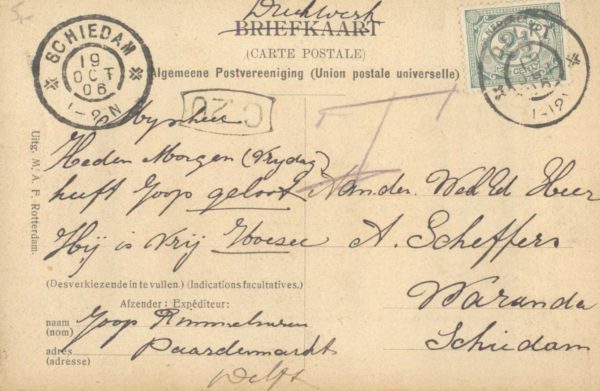 5,-
Drukwerk
BRIEFKAART
(CARTE POSTALE)
Algemeene Postvereeniging (Union postale universelle)
SCHIEDAM
19
OCT
06
1-2N
DELFT
1-12
2½
Uitgr. M. A. F. Rotterdam.
Mynheer
Heden Morgen (Vrydag)
heeft Joop geloot
Hij is vrij Hoesee
Aan den Weled Heer
A. Scheffers
Waranda
Schiedam
(Desverkiezende in te vullen.) (Indications facultatives.)
Afzender: Expéditeur:
naam Joop
(nom)
adres Paardenmarkt
(adresse)
Delft